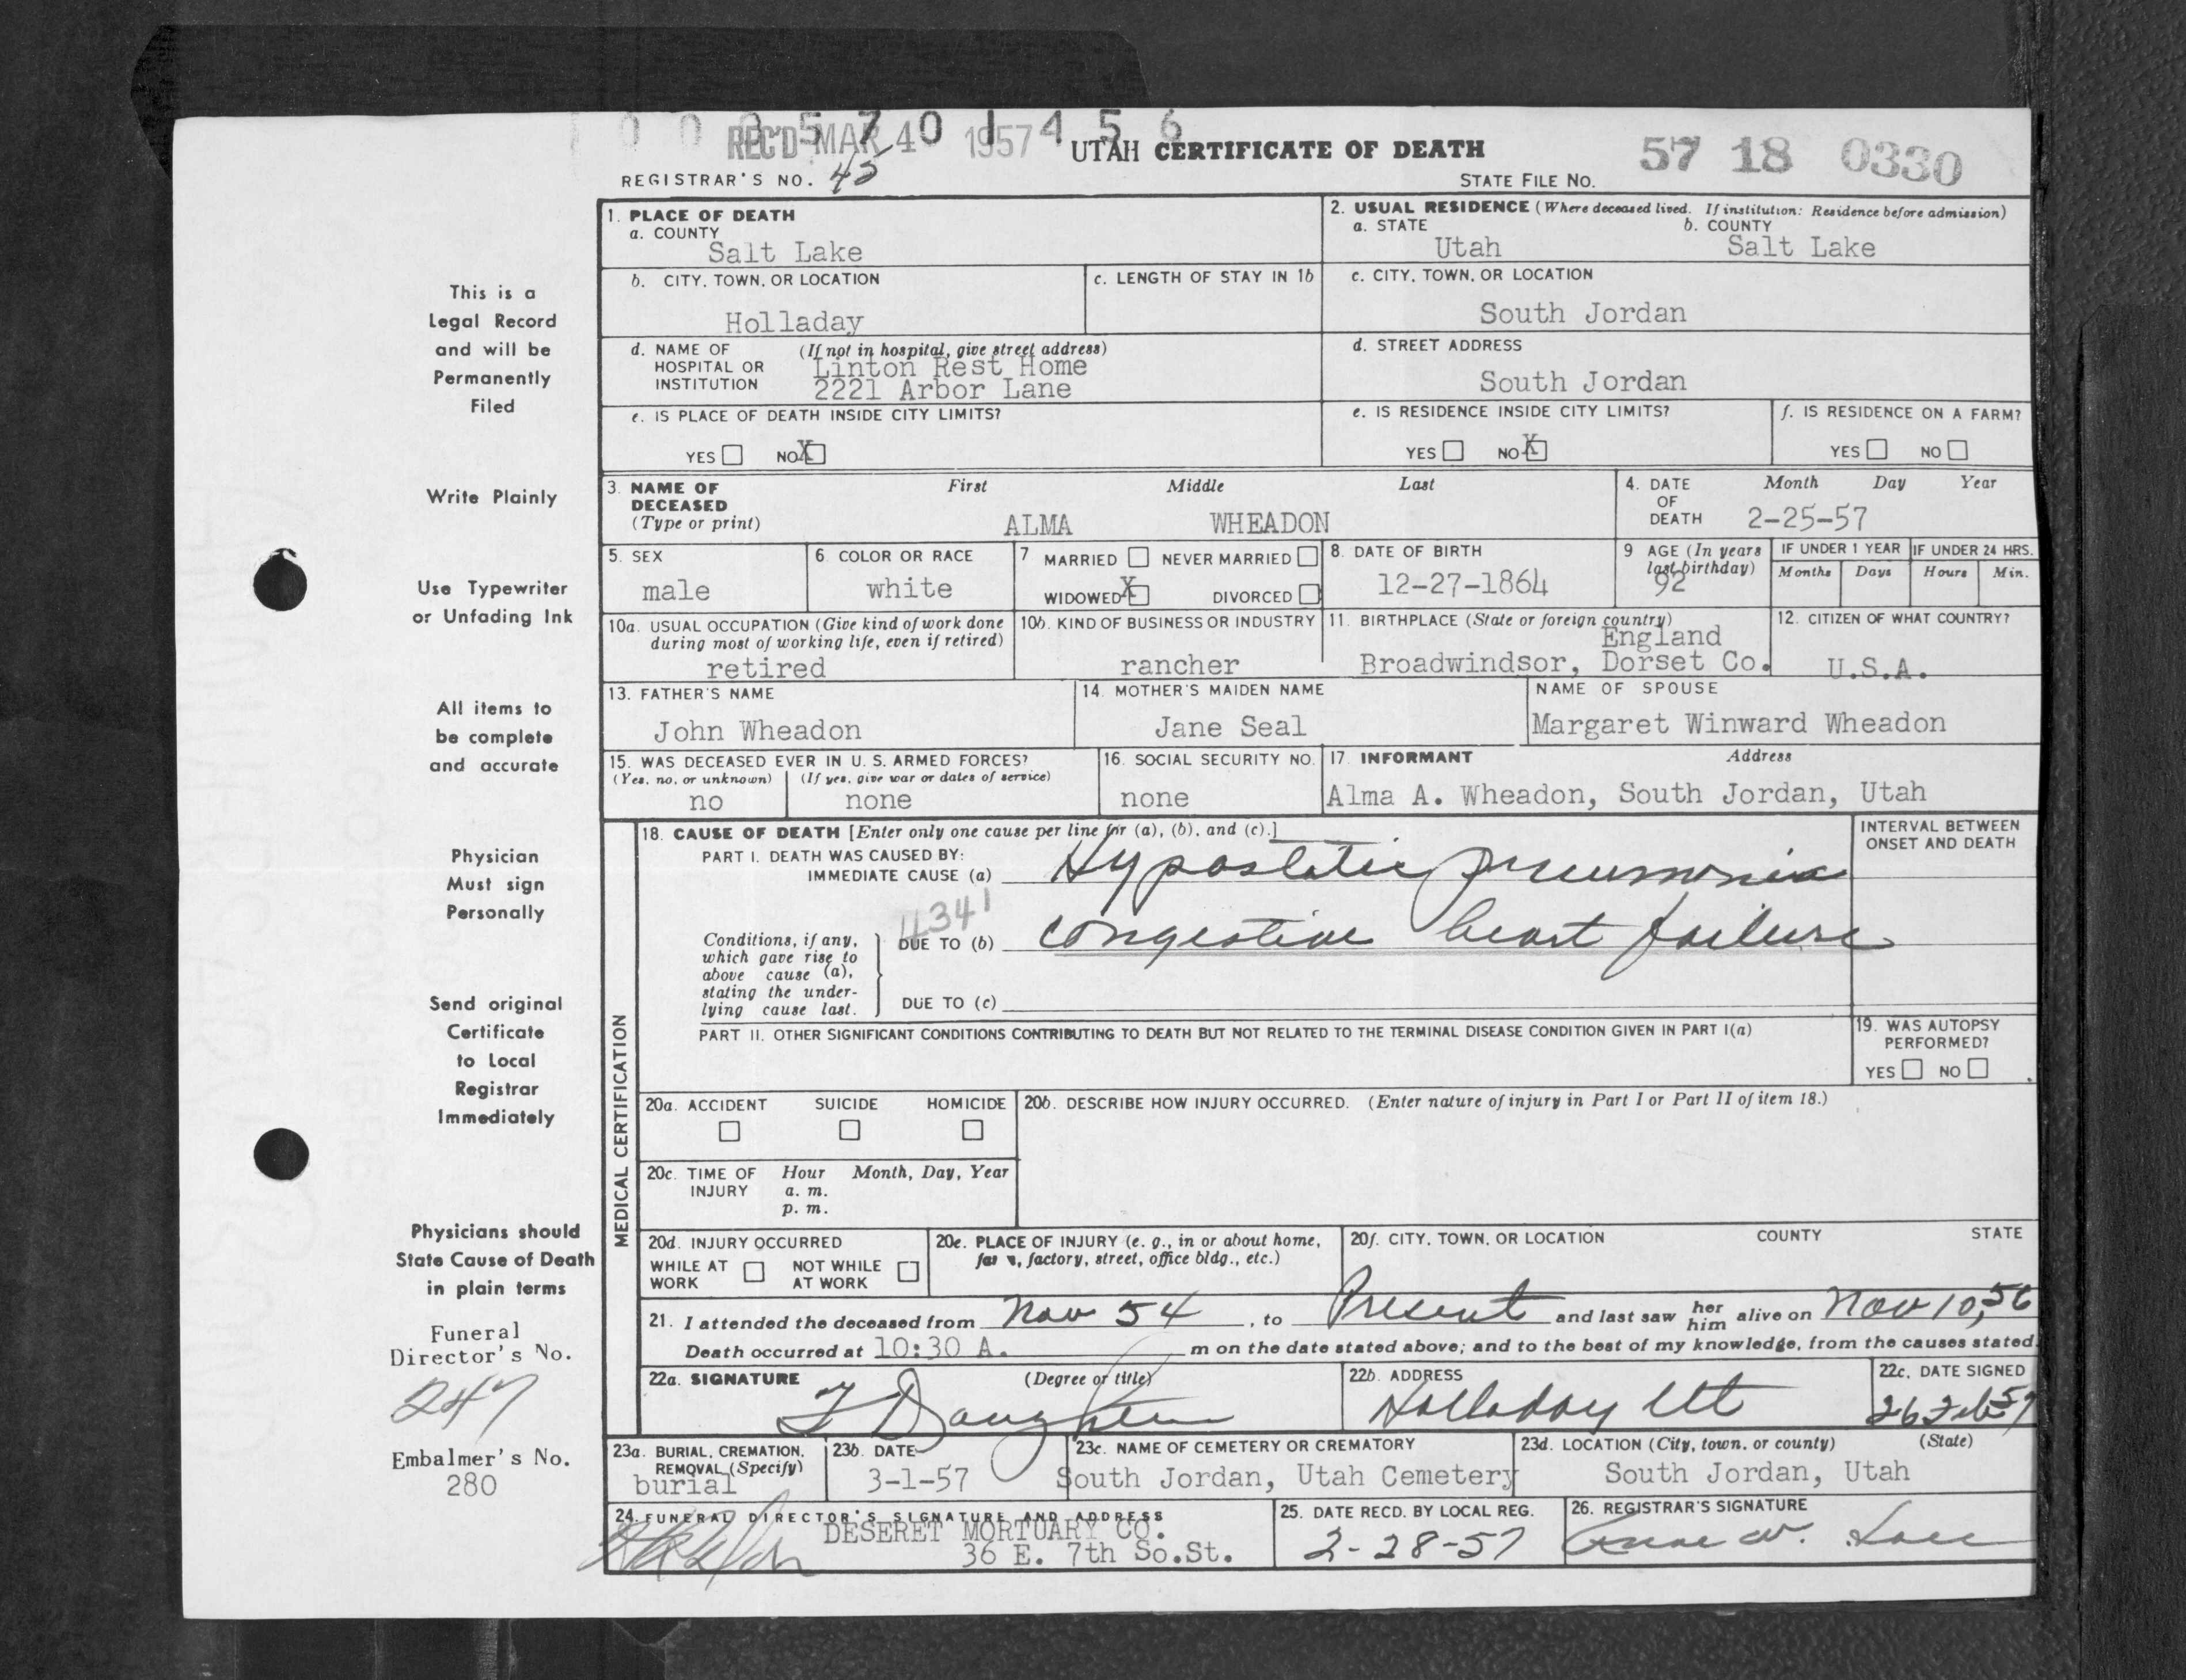 REC'D MAR 4 1957
0 0 0 5 7 0 1 4 5 6
UTAH CERTIFICATE OF DEATH
57 18 0330
REGISTRAR'S NO. 45
STATE FILE NO.
This is a
Legal Record
and will be
Permanently
Filed
Write Plainly
Use Typewriter
or Unfading Ink
All items to
be complete
and accurate
Physician
Must sign
Personally
Send original
Certificate
to Local
Registrar
Immediately
Physicians should
State Cause of Death
in plain terms
Funeral
Director's No.
247
Embalmer's No.
280
1. PLACE OF DEATH
a. COUNTY
Salt Lake
2. USUAL RESIDENCE (Where deceased lived. If institution: Residence before admission)
a. STATE b. COUNTY
Utah Salt Lake
b. CITY, TOWN, OR LOCATION
Holladay
c. LENGTH OF STAY IN 1b
c. CITY, TOWN, OR LOCATION
South Jordan
d. NAME OF HOSPITAL OR INSTITUTION (If not in hospital, give street address)
Linton Rest Home
2221 Arbor Lane
d. STREET ADDRESS
South Jordan
e. IS PLACE OF DEATH INSIDE CITY LIMITS?
YES NO X
e. IS RESIDENCE INSIDE CITY LIMITS?
YES NO X
f. IS RESIDENCE ON A FARM?
YES NO
3. NAME OF DECEASED (Type or print) First Middle Last
ALMA WHEADON
4. DATE OF DEATH Month Day Year
2-25-57
5. SEX
male
6. COLOR OR RACE
white
7 MARRIED NEVER MARRIED
WIDOWED X DIVORCED
8. DATE OF BIRTH
12-27-1864
9 AGE (In years last birthday)
92
IF UNDER 1 YEAR IF UNDER 24 HRS.
Months Days Hours Min.
10a. USUAL OCCUPATION (Give kind of work done
during most of working life, even if retired)
retired
10b. KIND OF BUSINESS OR INDUSTRY
rancher
11. BIRTHPLACE (State or foreign country)
England
Broadwindsor, Dorset Co.
12. CITIZEN OF WHAT COUNTRY?
U.S.A.
13. FATHER'S NAME
John Wheadon
14. MOTHER'S MAIDEN NAME
Jane Seal
NAME OF SPOUSE
Margaret Winward Wheadon
15. WAS DECEASED EVER IN U. S. ARMED FORCES?
(Yes, no, or unknown) (If yes, give war or dates of service)
no none
16. SOCIAL SECURITY NO.
none
17. INFORMANT Address
Alma A. Wheadon, South Jordan, Utah
MEDICAL CERTIFICATION
18. CAUSE OF DEATH [Enter only one cause per line for (a), (b), and (c).]
INTERVAL BETWEEN
ONSET AND DEATH
PART I. DEATH WAS CAUSED BY:
IMMEDIATE CAUSE (a) Hypostatic pneumonia
4341
Conditions, if any,
which gave rise to
above cause (a),
stating the under-
lying cause last.
DUE TO (b) congestive heart failure
DUE TO (c)
PART II. OTHER SIGNIFICANT CONDITIONS CONTRIBUTING TO DEATH BUT NOT RELATED TO THE TERMINAL DISEASE CONDITION GIVEN IN PART I(a)
19. WAS AUTOPSY
PERFORMED?
YES NO
20a. ACCIDENT SUICIDE HOMICIDE
20b. DESCRIBE HOW INJURY OCCURRED. (Enter nature of injury in Part I or Part II of item 18.)
20c. TIME OF INJURY Hour Month, Day, Year
a. m.
p. m.
20d. INJURY OCCURRED
WHILE AT WORK NOT WHILE AT WORK
20e. PLACE OF INJURY (e. g., in or about home,
farm, factory, street, office bldg., etc.)
20f. CITY, TOWN, OR LOCATION COUNTY STATE
21. I attended the deceased from Nov 54, to Present and last saw her him alive on Nov 10, 56
Death occurred at 10:30 A. m on the date stated above; and to the best of my knowledge, from the causes stated.
22a. SIGNATURE (Degree or title)
22b. ADDRESS
Holladay Ut
22c. DATE SIGNED
26 Feb 57
23a. BURIAL, CREMATION,
REMOVAL (Specify)
burial
23b. DATE
3-1-57
23c. NAME OF CEMETERY OR CREMATORY
South Jordan, Utah Cemetery
23d. LOCATION (City, town, or county) (State)
South Jordan, Utah
24. FUNERAL DIRECTOR'S SIGNATURE AND ADDRESS
DESERET MORTUARY CO.
36 E. 7th So.St.
25. DATE RECD. BY LOCAL REG.
2-28-57
26. REGISTRAR'S SIGNATURE